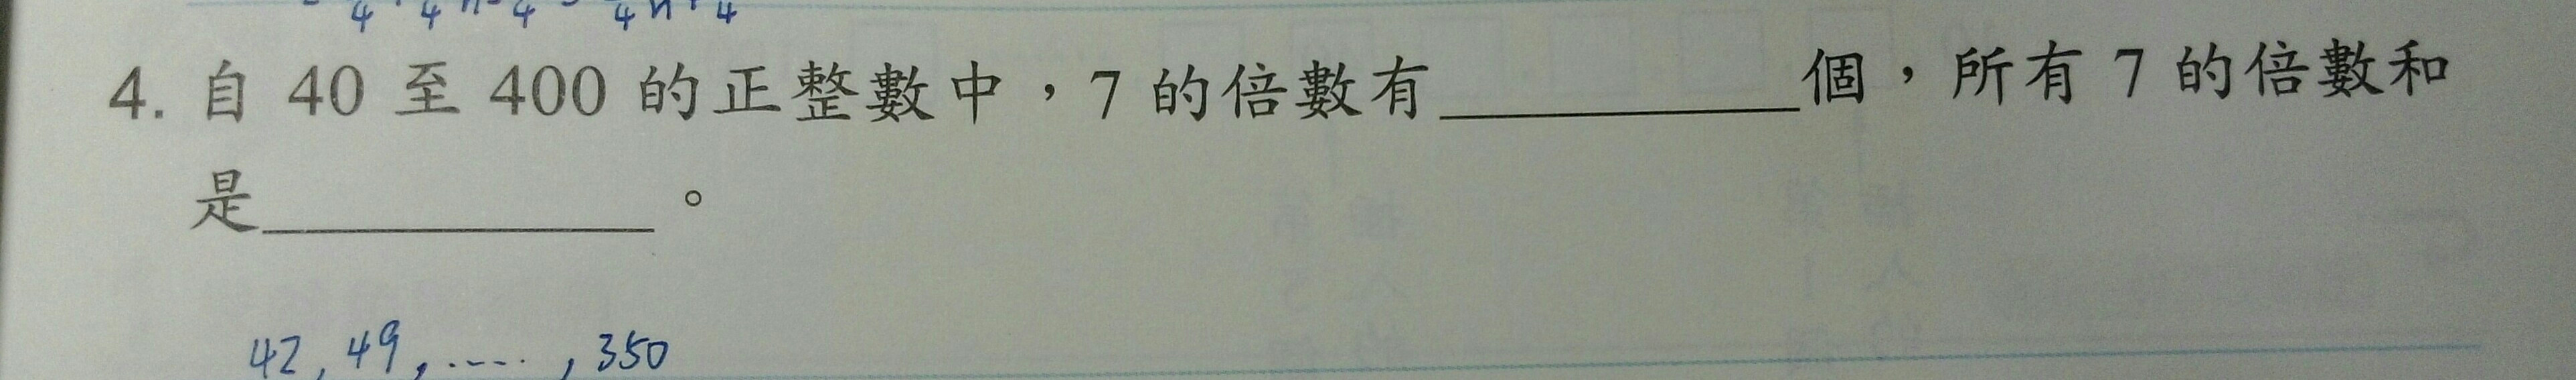 4. 自 40 至 400 的正整數中，7 的倍數有__________個，所有 7 的倍數和
是__________。
42, 49, ..... , 350